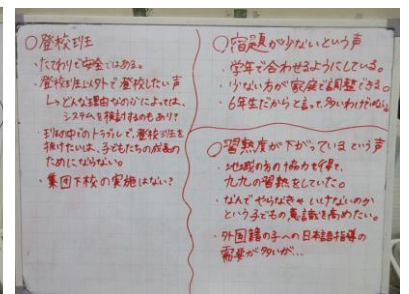 ○登校班
・たてわりで安全ではある。
・登校班以外で登校したい声
↳どんな理由なのかによっては、
システムを検討するのもあり?
・班の中でのトラブルで、登校班を
抜けたいは、子どもたちの成長の
ためにならない。
・集団下校の実施はない?
○宿題が少ないという声
・学年で合わせるようにしている。
・少ない方が家庭で調整できる。
・6年生だからと言って、多いわけではない。
○習熟度が下がっているという声
・地域の方の協力を得て、
九九の習熟をしていた。
・なんでやらなきゃいけないのか
という子どもの意識を高めたい。
・外国籍の子への日本語指導の
需要が多いが…